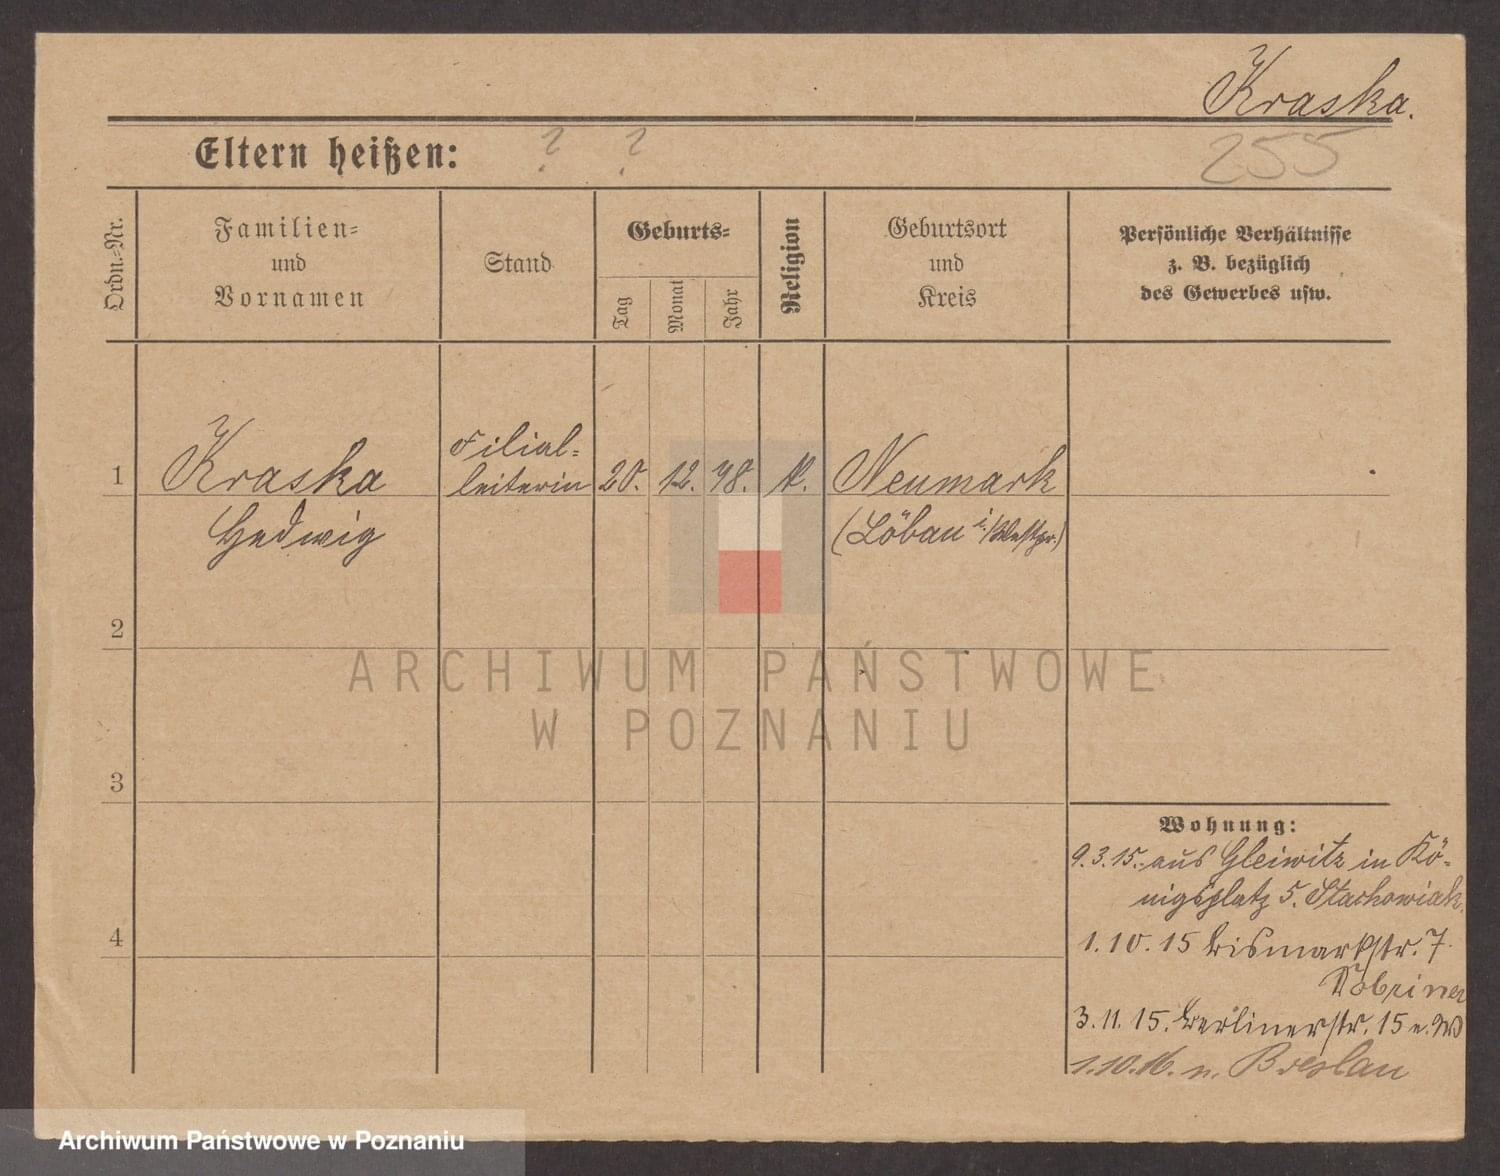 Kraska.
Eltern heißen: ? ?
255
Ordn.-Nr.
Familien-
und
Vornamen
Stand
Geburts-
Tag
Monat
Jahr
Religion
Geburtsort
und
Kreis
Persönliche Verhältnisse
z. B. bezüglich
des Gewerbes usw.
1
Kraska
Hedwig
Filial-
leiterin
20. 12. 48.
k.
Neumark
(Löbau i/Westpr.)
2
3
4
Wohnung:
9.3.15. aus Gleiwitz in Kö-
nigsplatz 5. Stachowiak.
1.10.15 Bismarkstr. 7.
Dobriner
3.11.15. Berlinerstr. 15 e. W
1.10.16. n. Breslau
ARCHIWUM PAŃSTWOWE
W POZNANIU
Archiwum Państwowe w Poznaniu